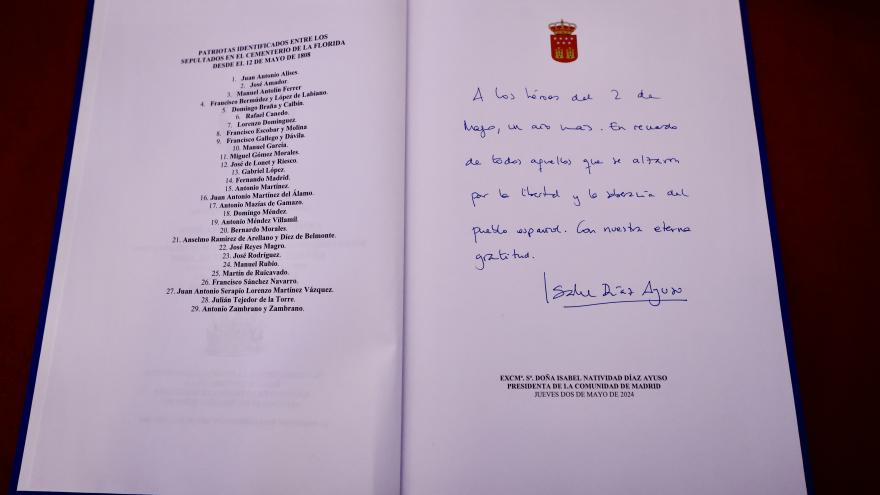 PATRIOTAS IDENTIFICADOS ENTRE LOS
SEPULTADOS EN EL CEMENTERIO DE LA FLORIDA
DESDE EL 12 DE MAYO DE 1808
1. Juan Antonio Alises.
2. José Amador.
3. Manuel Antolín Ferrer
4. Francisco Bermúdez y López de Labiano.
5. Domingo Braña y Calbín.
6. Rafael Canedo.
7. Lorenzo Domínguez.
8. Francisco Escobar y Molina
9. Francisco Gallego y Dávila.
10. Manuel García.
11. Miguel Gómez Morales.
12. José de Lonet y Riesco.
13. Gabriel López.
14. Fernando Madrid.
15. Antonio Martínez.
16. Juan Antonio Martínez del Álamo.
17. Antonio Mazías de Gamazo.
18. Domingo Méndez.
19. Antonio Méndez Villamil.
20. Bernardo Morales.
21. Anselmo Ramírez de Arellano y Díez de Belmonte.
22. José Reyes Magro.
23. José Rodríguez.
24. Manuel Rubio.
25. Martín de Ruicavado.
26. Francisco Sánchez Navarro.
27. Juan Antonio Serapio Lorenzo Martínez Vázquez.
28. Julián Tejedor de la Torre.
29. Antonio Zambrano y Zambrano.
A los héroes del 2 de
Mayo, un año más. En recuerdo
de todos aquellos que se alzaron
por la libertad y la soberanía del
pueblo español. Con nuestra eterna
gratitud.
Isabel Díaz Ayuso
EXCMª. Sª. DOÑA ISABEL NATIVIDAD DÍAZ AYUSO
PRESIDENTA DE LA COMUNIDAD DE MADRID
JUEVES DOS DE MAYO DE 2024